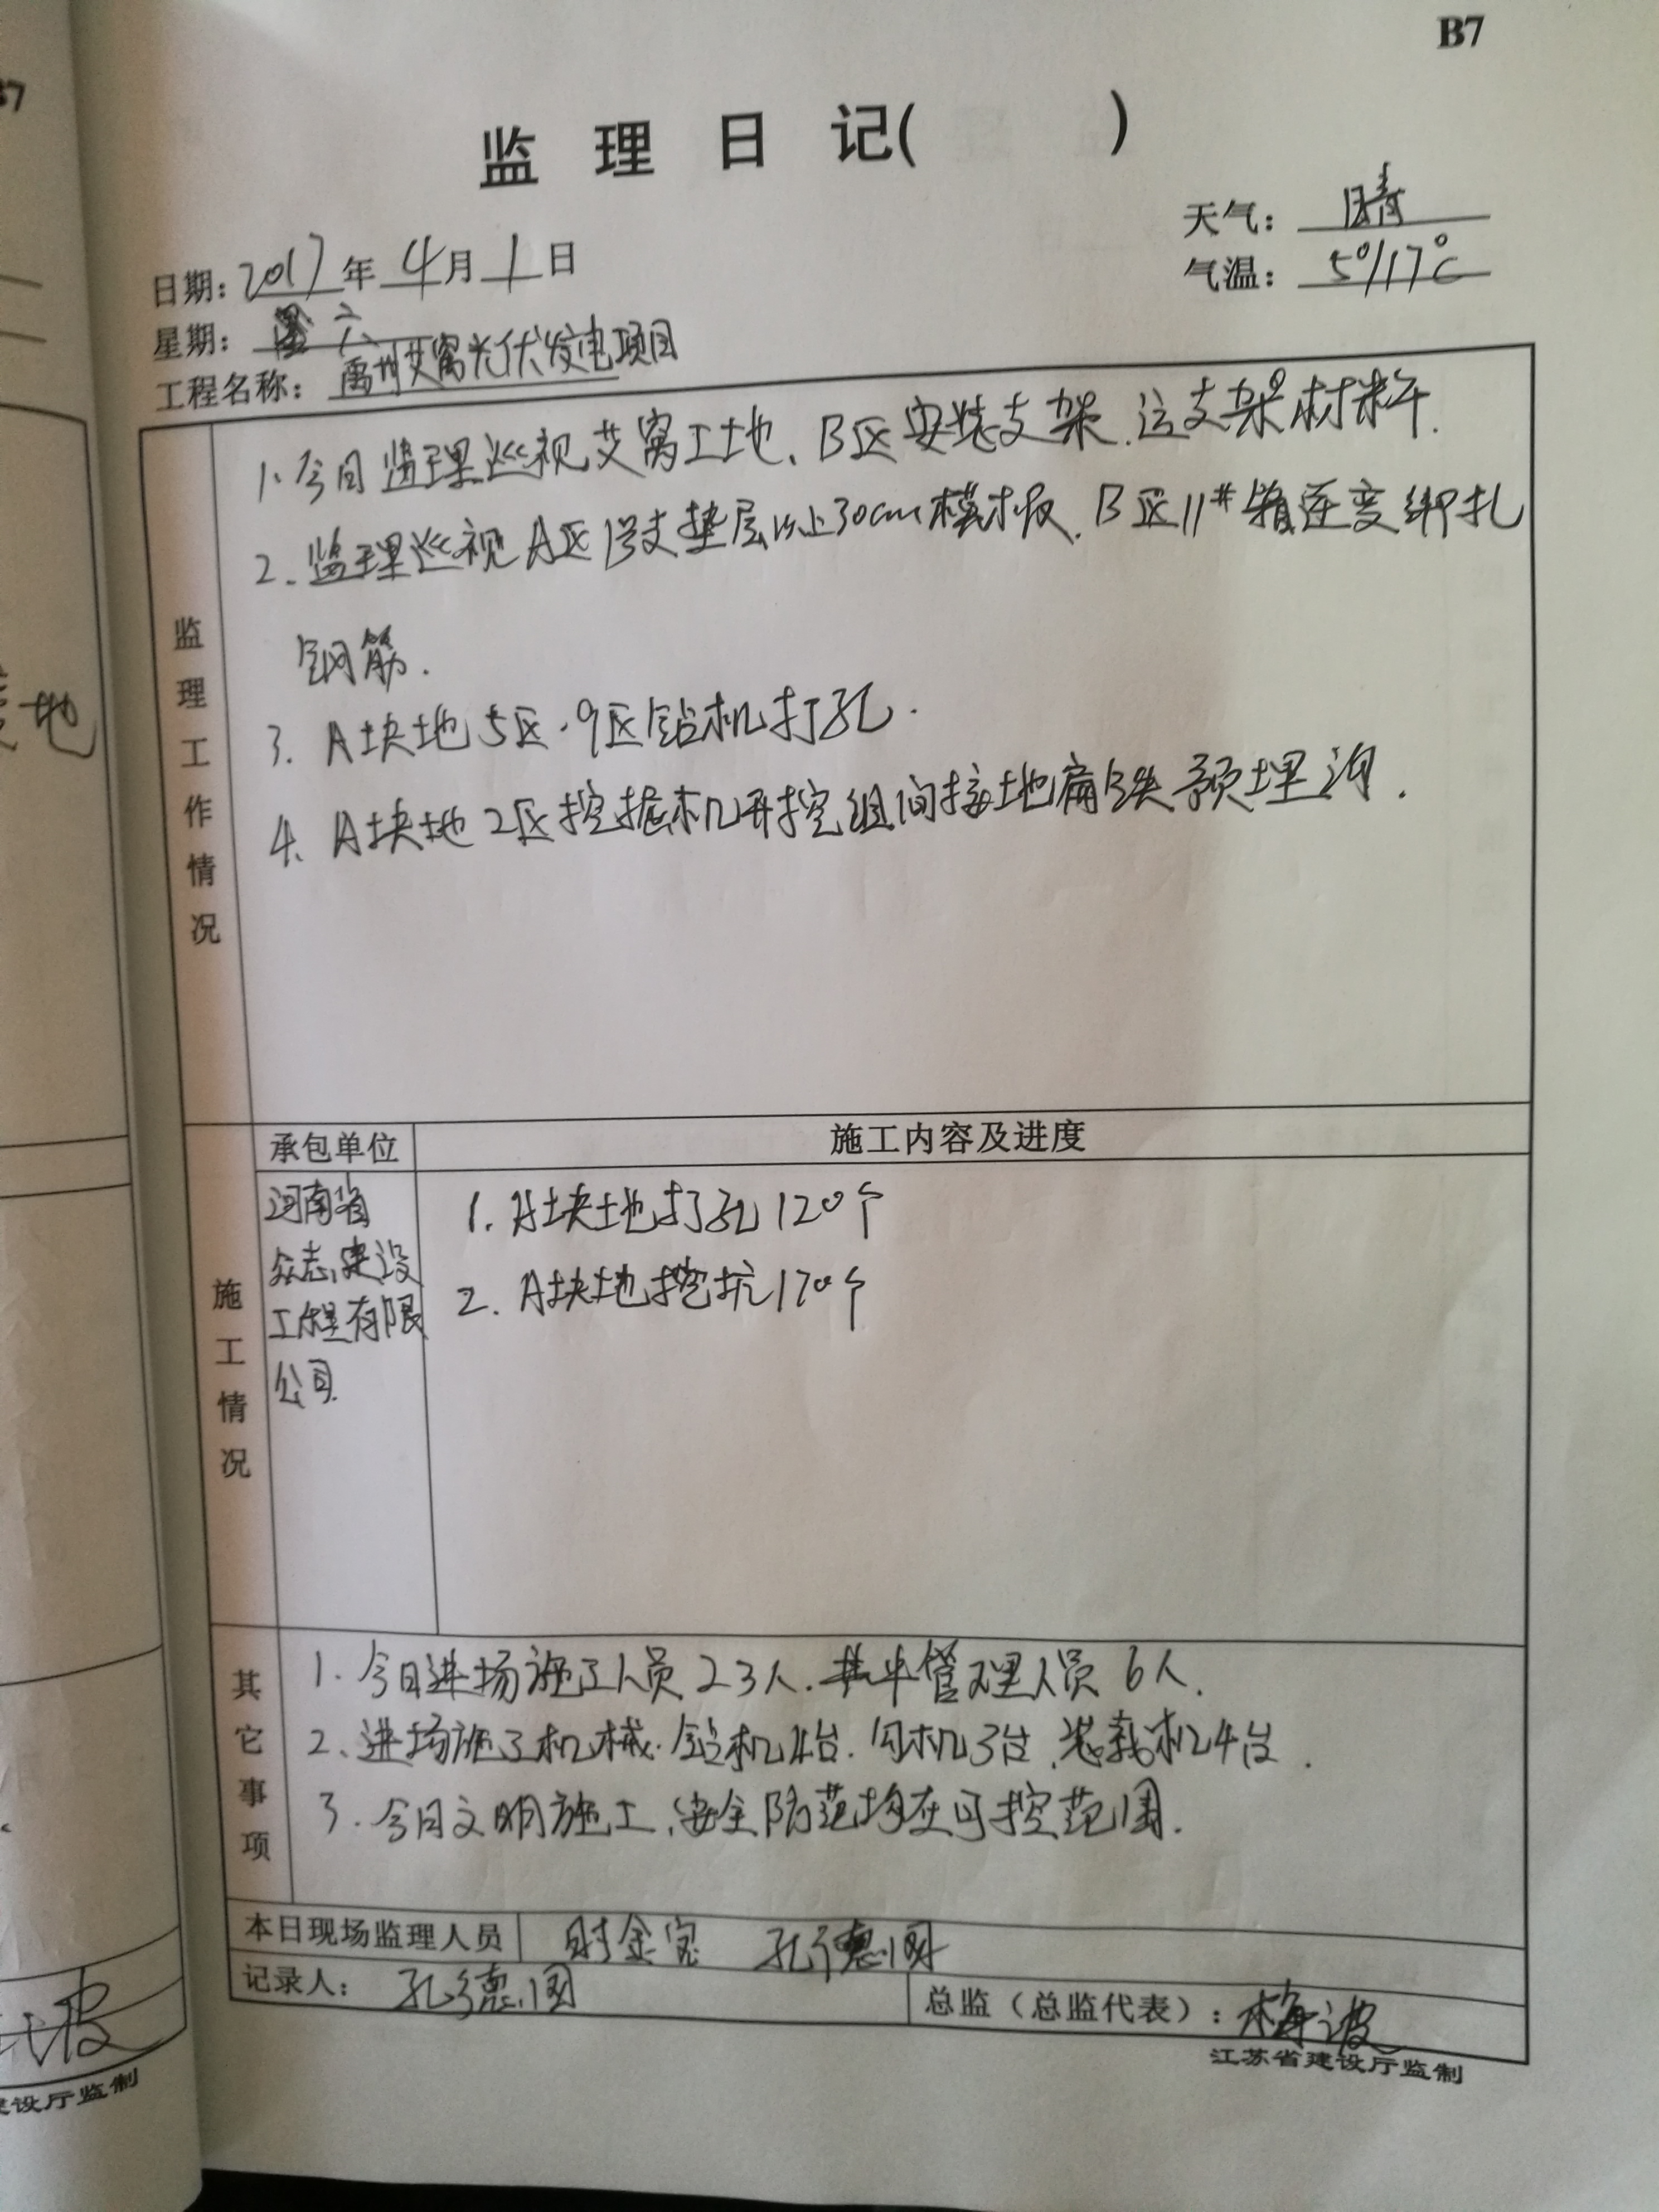 B7
监 理 日 记( )
天气: 晴
气温: 5°/17°C
日期: 2017年 4月 1日
星期: 六
工程名称: 禹州艾窝光伏发电项目
监理工作情况
1、今日监理巡视艾窝工地、B区安装支架、运支架材料.
2、监理巡视A区1号支垫层以上30cm模板、B区11#箱逆变绑扎
钢筋.
3、A块地5区、9区钻机打孔.
4、A块地2区挖掘机开挖组间接地扁铁预埋沟.
施工情况
承包单位
施工内容及进度
河南省
众志建设
工程有限
公司
1、A块地打孔120个
2、A块地挖坑170个
其它事项
1、今日进场施工人员23人、管理人员6人.
2、进场施工机械、钻机4台、勾机3台、装载机4台.
3、今日文明施工、安全防范均在可控范围.
本日现场监理人员
金宝 孔德国
记录人: 孔德国
总监(总监代表): 梅波
江苏省建设厅监制
37
地
波
建设厅监制